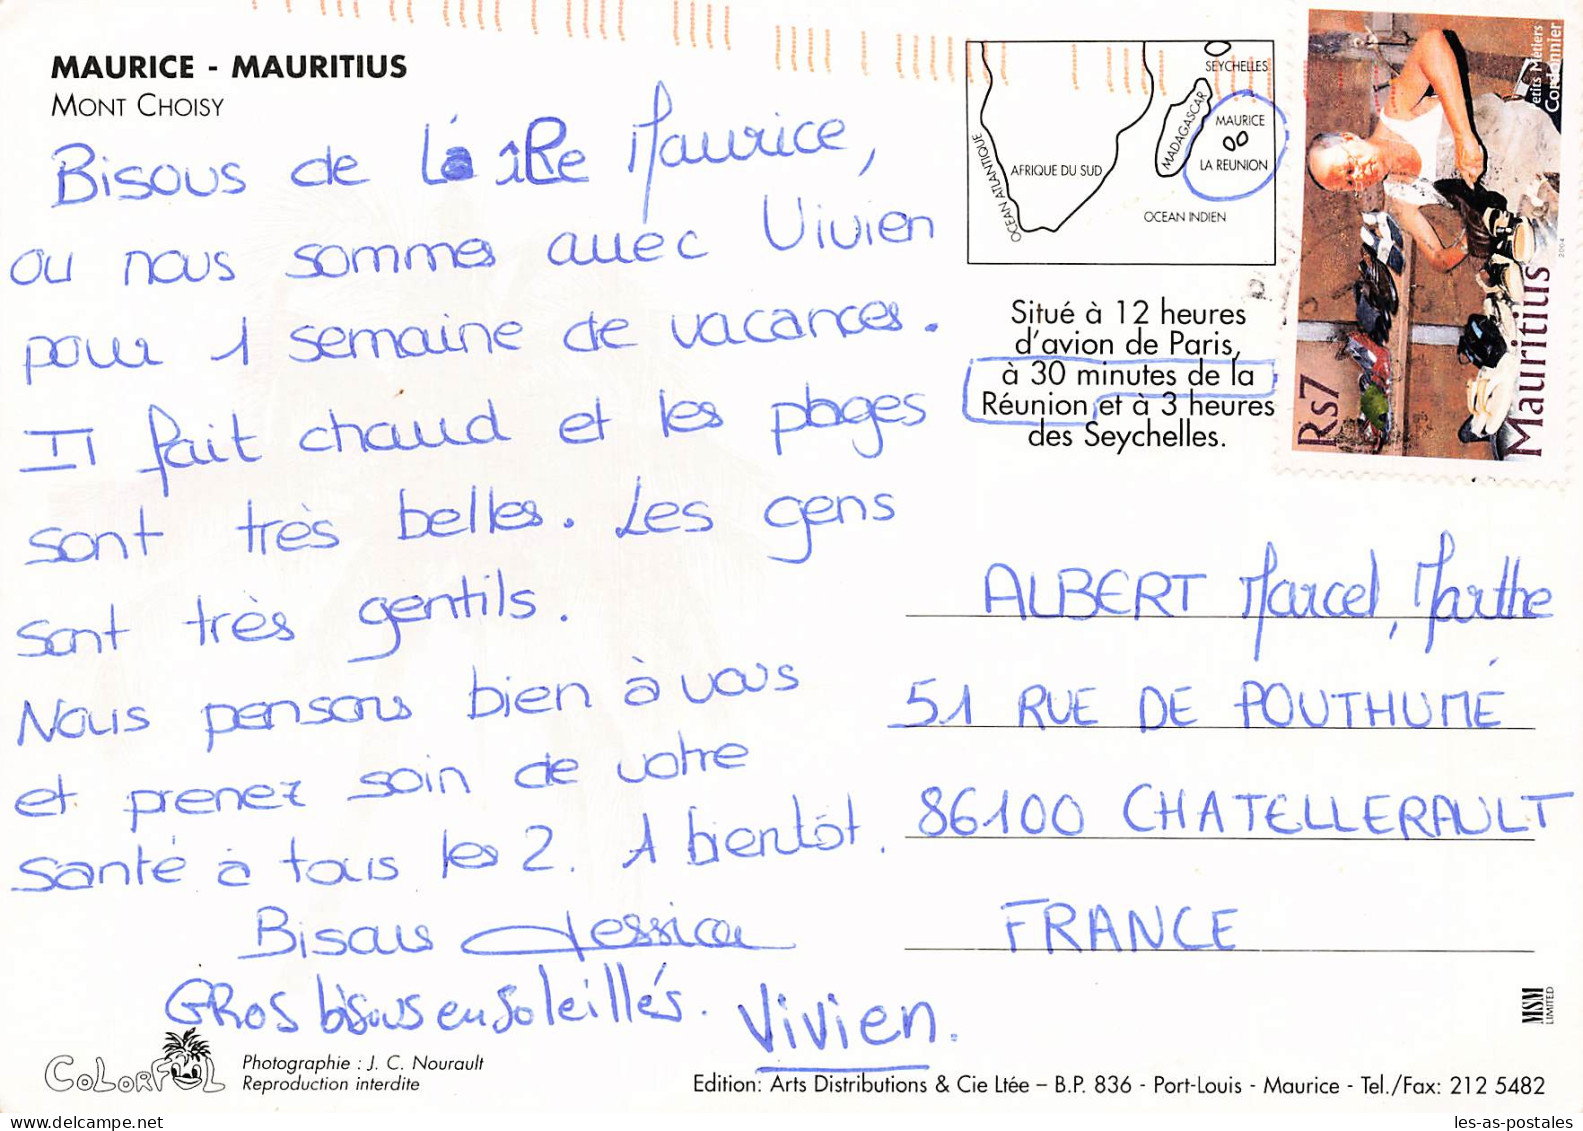 MAURICE - MAURITIUS
MONT CHOISY
Bisous de l'île Maurice,
ou nous sommes avec Vivien
pour 1 semaine de vacances.
Il fait chaud et les plages
sont très belles. Les gens
sont très gentils.
Nous pensons bien à vous
et prenez soin de votre
santé à tous les 2. A bientôt.
Bisous Jessica
GROS bisous ensoleillés. Vivien.
COLORFUL
Photographie : J. C. Nourault
Reproduction interdite
SEYCHELLES
MADAGASCAR
MAURICE
LA REUNION
AFRIQUE DU SUD
OCEAN ATLANTIQUE
OCEAN INDIEN
Situé à 12 heures
d'avion de Paris,
à 30 minutes de la
Réunion et à 3 heures
des Seychelles.
Petits Métiers
Cordonnier
2004
Rs7
Mauritius
ALBERT Marcel, Marthe
51 RUE DE POUTHUMÉ
86100 CHATELLERAULT
FRANCE
MSM
LIMITED
Edition: Arts Distributions & Cie Ltée – B.P. 836 - Port-Louis - Maurice - Tel./Fax: 212 5482
delcampe.net
les-as-postales